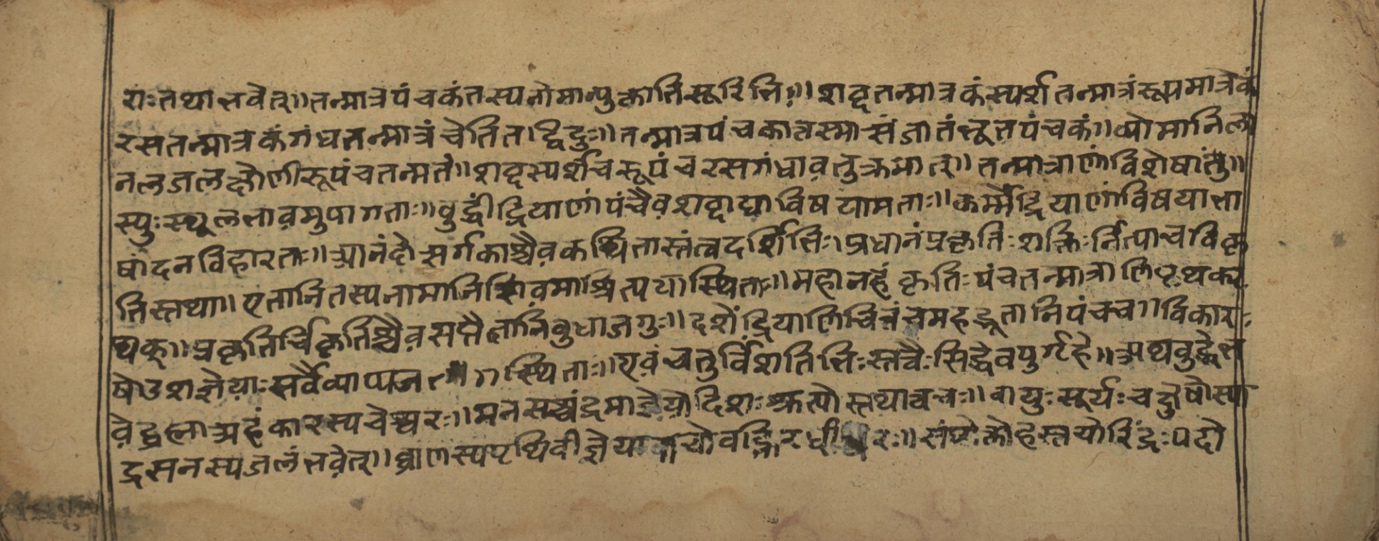 राः तथा भवेत्॥ तन्मात्रपंचकं तस्य नामान्युक्तानि सूरिभिः॥ शब्दतन्मात्रकं स्पर्शतन्मात्रं रूपमात्रकं
रसतन्मात्रकं गंधतन्मात्रं चेति तद्विदुः॥ तन्मात्रपंचकात्तस्मात्संजातं भूतपंचकं॥ व्योमानिला
नलजलक्षोणीरूपं च तन्मतं॥ शब्दस्पर्शच रूपं च रसगंधावनुक्रमात्॥ तन्मात्राणां विशेषांतु॥
स्युः स्थूलभावमुपागताः॥ बुद्धींद्रियाणां पंचैव शब्दाद्या विषया मताः॥ कर्मेंद्रियाणां विषया भा
षादनविहारतः॥ आनंदो सर्गकाश्चैव कथितास्तंत्वदर्शिभिः॥ प्रधानं प्रकृतिः शक्तिः र्नित्या चविकृ
तिस्तथा॥ एतानि तस्य नामानि शिवमाश्रित्य या स्थिताः॥ महानहंकृतिः पंचतन्मात्राणि पृथकपृ
थक्॥ प्रकृतिर्विकृतिश्चैव सप्तैतानि बुधा जगुः॥ दशेंद्रियाणि चित्तं च महद्भूतानि पंच च॥ विकाराः
षोडश ज्ञेयाः सर्वेव्याप्य जत ग स्थिताः॥ एवं चतुर्विंशतिभिः स्तत्वैः सिद्धे वपुर्गृहे॥ अथ बुद्धेर्भ
वेद्ब्रह्मा अहंकारस्य चेश्वरः॥ मनसश्चंद्रमा ज्ञेयो दिशः श्रुत्यो स्तथा त्वचः॥ वायुः सूर्यः चक्षुषोस्या
द्रसनस्य जलं भवेत्॥ घ्राणस्य पृथिवी ज्ञेया वाचो वह्नि हस्तयोरिंद्रः पदो